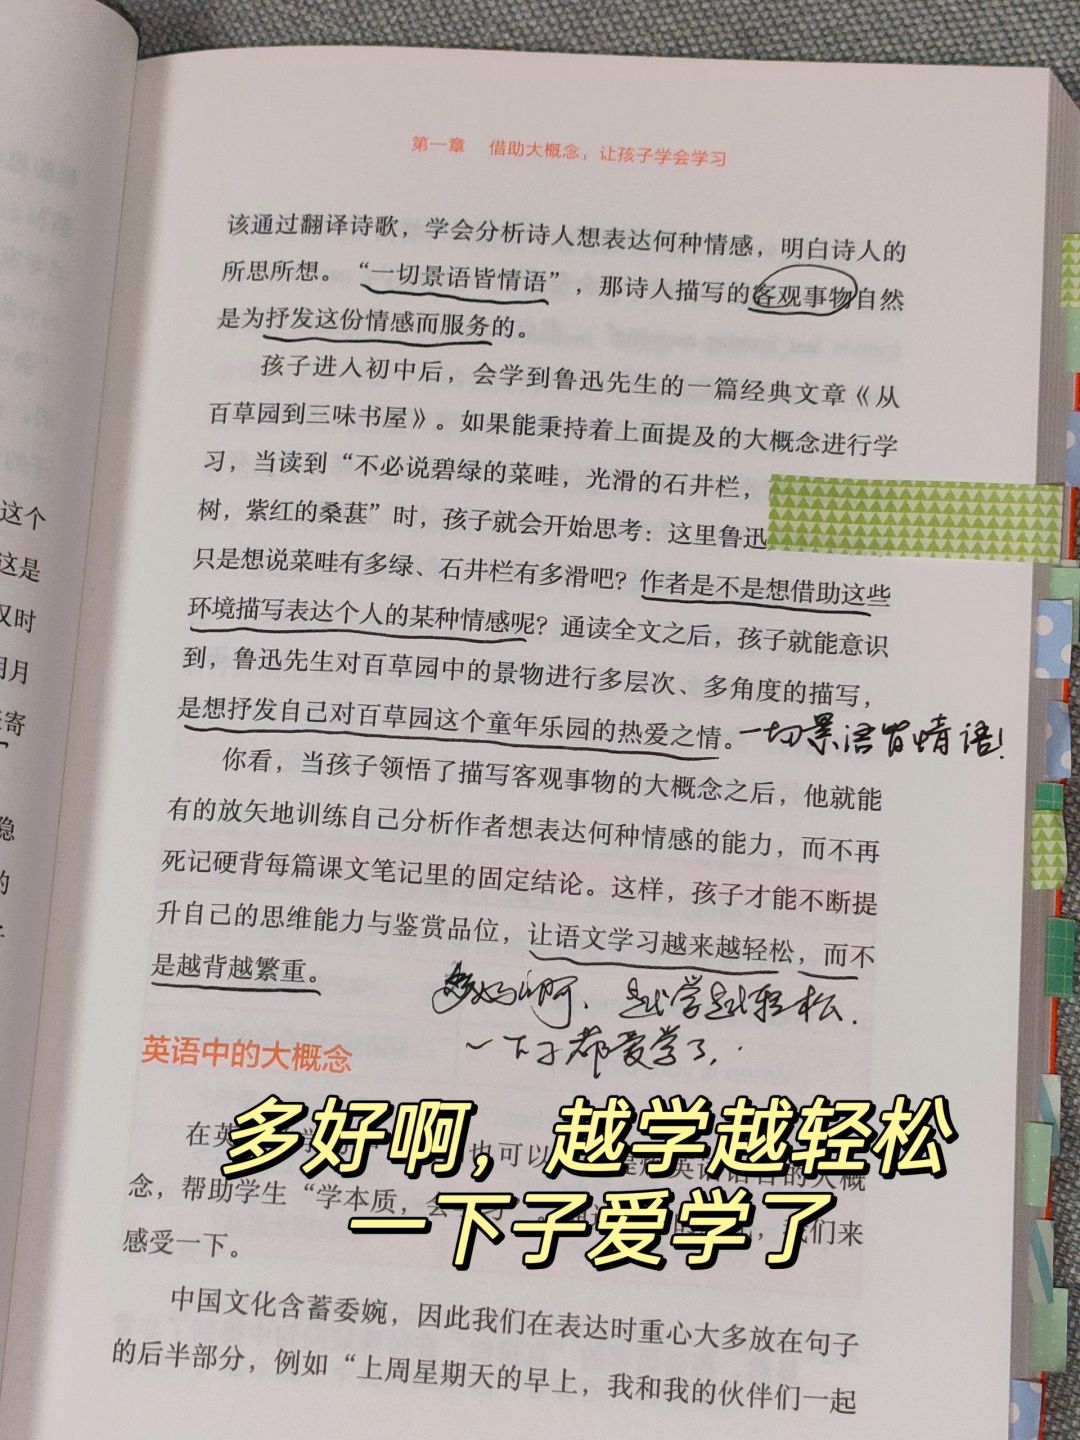 第一章 借助大概念，让孩子学会学习
该通过翻译诗歌，学会分析诗人想表达何种情感，明白诗人的
所思所想。“一切景语皆情语”，那诗人描写的客观事物自然
是为抒发这份情感而服务的。
孩子进入初中后，会学到鲁迅先生的一篇经典文章《从
百草园到三味书屋》。如果能秉持着上面提及的大概念进行学
习，当读到“不必说碧绿的菜畦，光滑的石井栏，
树，紫红的桑葚”时，孩子就会开始思考：这里鲁迅
只是想说菜畦有多绿、石井栏有多滑吧？作者是不是想借助这些
环境描写表达个人的某种情感呢？通读全文之后，孩子就能意识
到，鲁迅先生对百草园中的景物进行多层次、多角度的描写，
是想抒发自己对百草园这个童年乐园的热爱之情。一切景语皆情语！
你看，当孩子领悟了描写客观事物的大概念之后，他就能
有的放矢地训练自己分析作者想表达何种情感的能力，而不再
死记硬背每篇课文笔记里的固定结论。这样，孩子才能不断提
升自己的思维能力与鉴赏品位，让语文学习越来越轻松，而不
是越背越繁重。
啊，越学越轻松．
一下子都爱学了．
英语中的大概念
多好啊，越学越轻松
一下子爱学了
在英
也可以
英语语言的大概
念，帮助学生“学本质，会
我们来
感受一下。
中国文化含蓄委婉，因此我们在表达时重心大多放在句子
的后半部分，例如“上周星期天的早上，我和我的伙伴们一起
这个
这是
汉时
明月
寄
隐
的